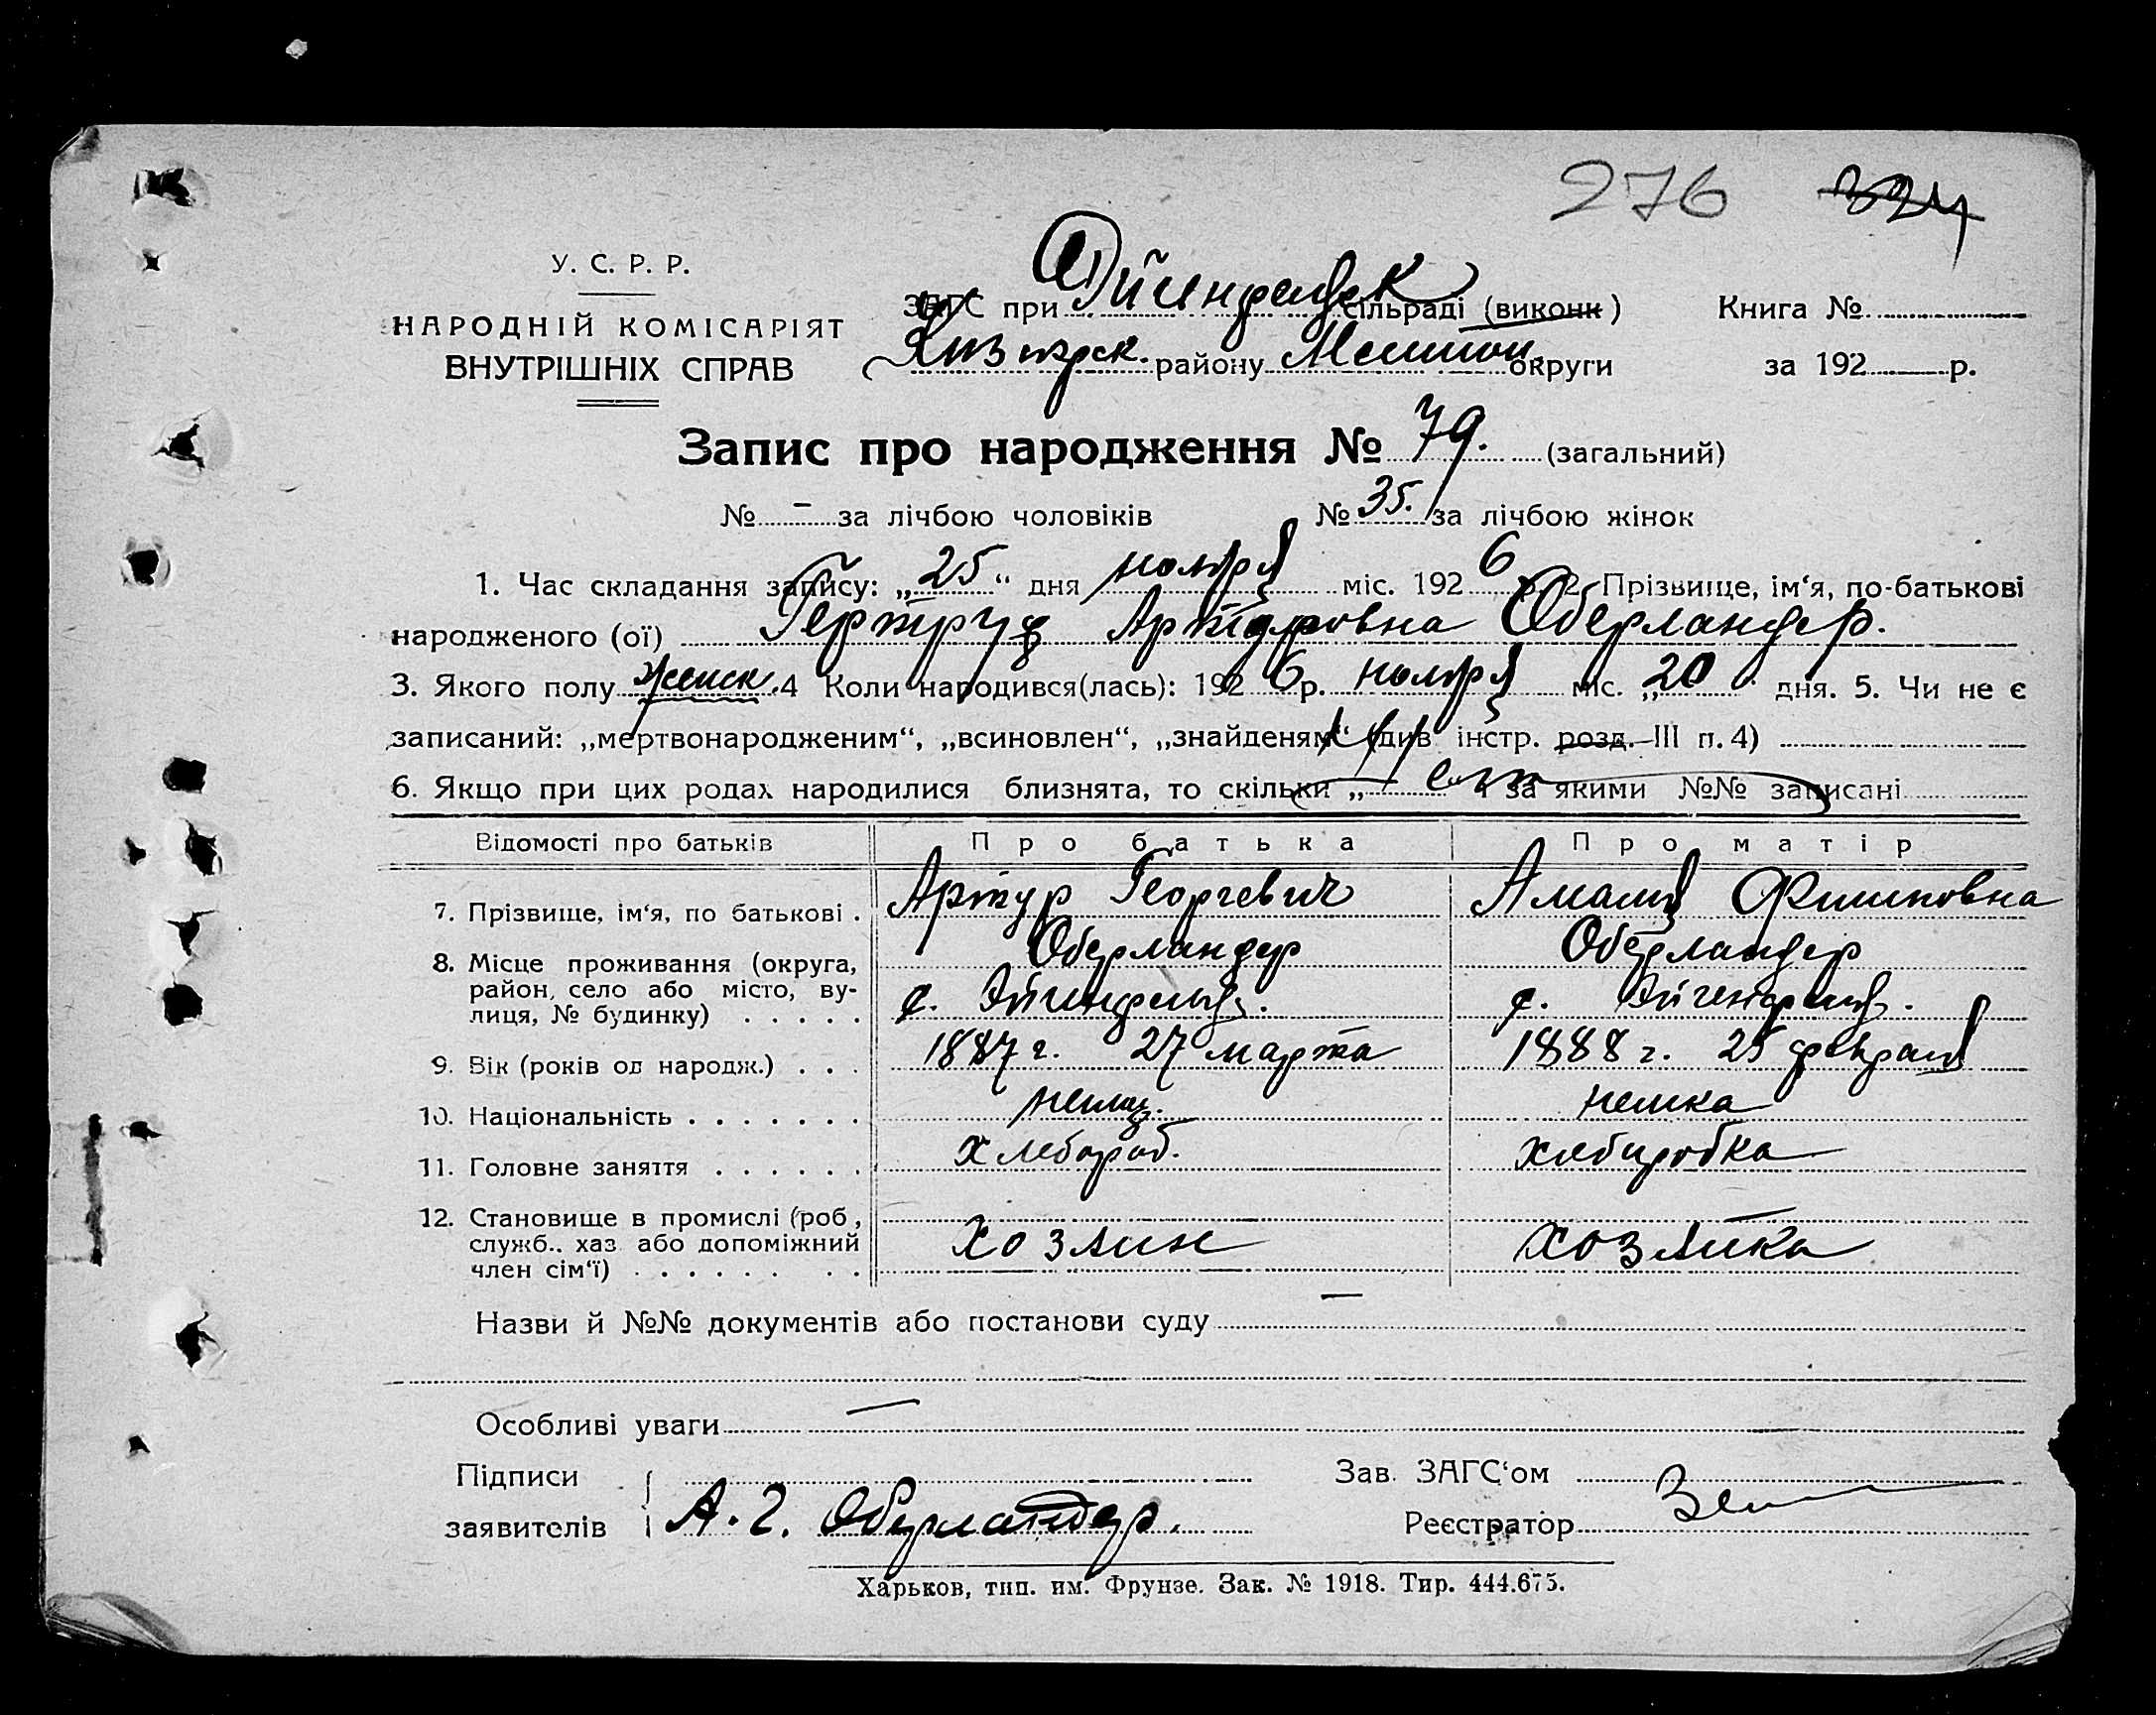 276 324
У. С. Р. Р.
НАРОДНІЙ КОМІСАРІЯТ
ВНУТРІШНІХ СПРАВ
ЗАГС при сільраді (виконк)
району Мелитоп. округи
Книга №
за 192 р.
Запис про народження № 79. (загальний)
№ – за лічбою чоловіків № 35. за лічбою жінок
1. Час складання запису: „25“ дня ноября міс. 1926 р. 2. Прізвище, ім‘я, по-батькові
народженого (ої) Гертруд Артуровна Оберландер.
3. Якого полу женск. 4 Коли народився(лась): 1926 р. ноября міс. „20“ дня. 5. Чи не є
записаний: „мертвонародженим“, „всиновлен“, „знайденям“ (див інстр. розд. III п. 4)
6. Якщо при цих родах народилися близнята, то скільки „ – “ і за якими №№ записані
Відомості про батьків Про батька Про матір
7. Прізвище, ім‘я, по батькові . Артур Георгевич Амалия Филиповна
Оберландер Оберландер
8. Місце проживання (округа,
район, село або місто, ву-
лиця, № будинку) . . . . . с. Эйгенфельд. с. Эйгенфельд.
9. Вік (років од народж.) . . . 1887 г. 27 марта 1888 г. 25 февраля
10. Національність . . . . . . . немец. немка
11. Головне заняття . . . . . . хлебороб. хлеборобка
12. Становище в промислі (роб,
служб., хаз або допоміжний
член сім‘ї) . . . . . . . . хозяин хозяйка
Назви й №№ документів або постанови суду —
Особливі уваги —
Підписи Зав. ЗАГС‘ом
заявителів А. Г. Оберландер. Реєстратор
Харьков, тип. им. Фрунзе. Зак. № 1918. Тир. 444.675.